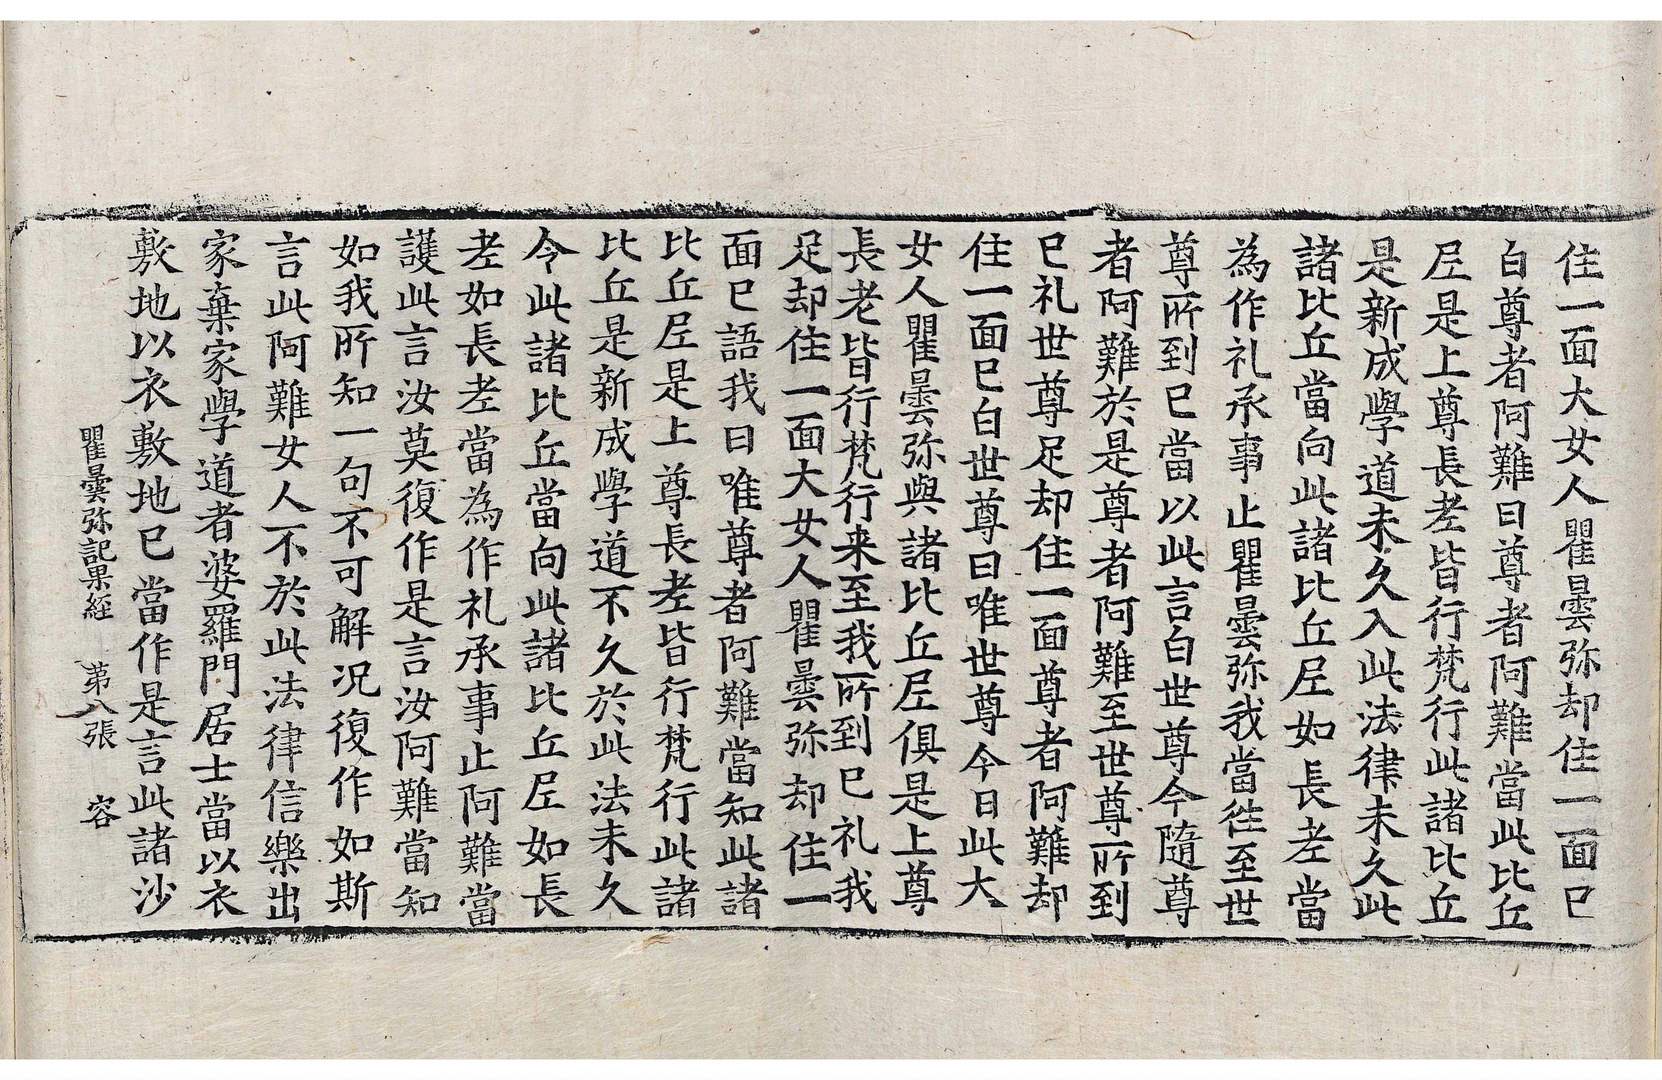 住一面大女人瞿曇弥却住一面已
白尊者阿難曰尊者阿難當此比丘
尼是上尊長老皆行梵行此諸比丘
是新成學道未久入此法律未久此
諸比丘當向此諸比丘尼如長老當
為作礼承事止瞿曇弥我當往至世
尊所到已當以此言白世尊今隨尊
者阿難於是尊者阿難至世尊所到
已礼世尊足却住一面尊者阿難却
住一面已白世尊曰唯世尊今日此大
女人瞿曇弥與諸比丘尼俱是上尊
長老皆行梵行来至我所到已礼我
足却住一面大女人瞿曇弥却住一
面已語我曰唯尊者阿難當知此諸
比丘尼是上尊長老皆行梵行此諸
比丘是新成學道不久於此法未久
今此諸比丘當向此諸比丘尼如長
老如長老當為作礼承事止阿難當
護此言汝莫復作是言汝阿難當知
如我所知一句不可解况復作如斯
言此阿難女人不於此法律信樂出
家棄家學道者婆羅門居士當以衣
敷地以衣敷地已當作是言此諸沙
瞿曇弥記果經 第八張 容